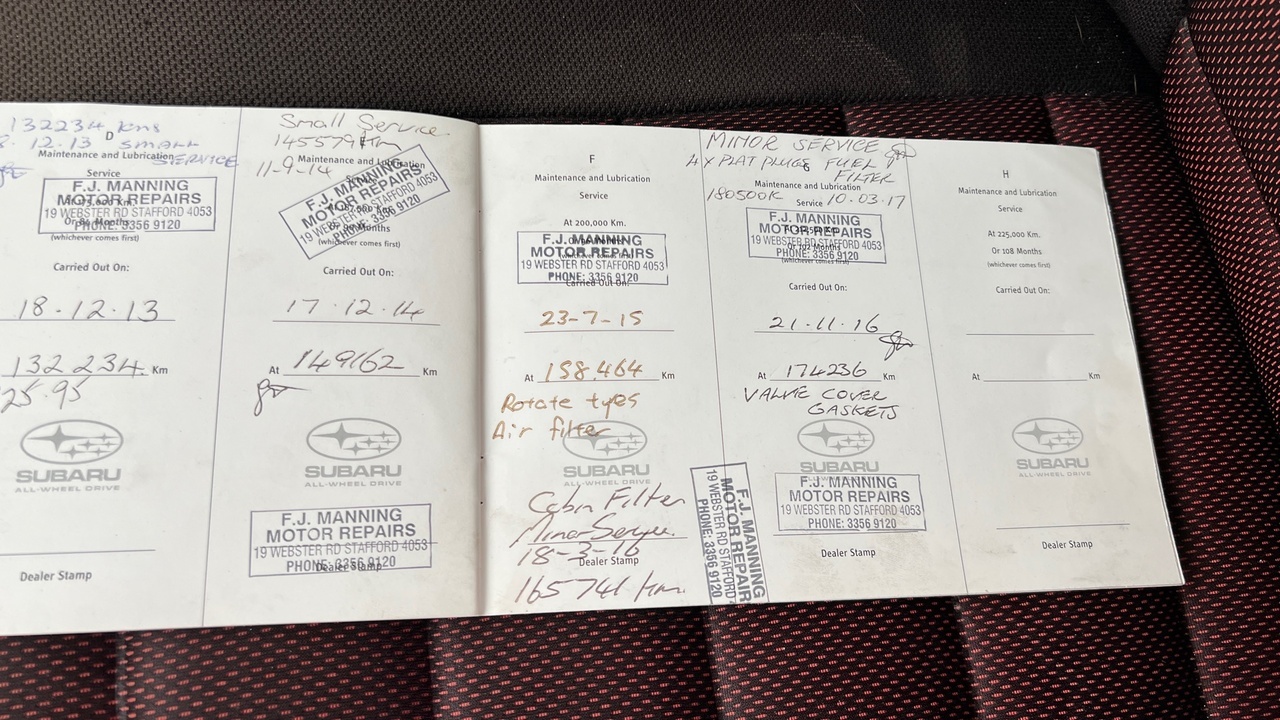 132234 kms
D
IN.13 SMALL
Maintenance and Lubrication
SERVICE
Service
F.J. MANNING
MOTOR REPAIRS
19 WEBSTER RD STAFFORD 4053
PHONE: 3356 9120
(whichever comes first)
Carried Out On:
18.12.13
132234 Km
25.95
SUBARU
ALL-WHEEL DRIVE
Dealer Stamp
Small Service
145579 Km
Maintenance and Lubrication
11-9-14
F.J. MANNING
MOTOR REPAIRS
19 WEBSTER RD STAFFORD 4053
PHONE: 3356 9120
Months
(whichever comes first)
Carried Out On:
17.12.14
At 149162 Km
SUBARU
ALL-WHEEL DRIVE
F.J. MANNING
MOTOR REPAIRS
19 WEBSTER RD STAFFORD 4053
PHONE: 3356 9120
Dealer Stamp
F
Maintenance and Lubrication
Service
At 200,000 Km.
F.J. MANNING
MOTOR REPAIRS
19 WEBSTER RD STAFFORD 4053
PHONE: 3356 9120
Carried Out On:
23-7-15
At 158.464 Km
Rotate tyes
Air filter
SUBARU
ALL-WHEEL DRIVE
Cabin Filter
Minor Service
18-3-16
Dealer Stamp
165741 Km
MINOR SERVICE
4 X PLAT PLUGS FUEL
FILTER
Maintenance and Lubrication
180500K Service 10.03.17
F.J. MANNING
MOTOR REPAIRS
19 WEBSTER RD STAFFORD 4053
PHONE: 3356 9120
(whichever comes first)
Carried Out On:
21.11.16
At 174236 Km
VALVE COVER
GASKETS
SUBARU
F.J. MANNING
MOTOR REPAIRS
19 WEBSTER RD STAFFORD 4053
PHONE: 3356 9120
Dealer Stamp
F.J. MANNING
MOTOR REPAIR
19 WEBSTER RD STAFFORD
PHONE: 3356 9120
H
Maintenance and Lubrication
Service
At 225,000 Km.
Or 108 Months
(whichever comes first)
Carried Out On:
At Km
SUBARU
ALL-WHEEL DRIVE
Dealer Stamp